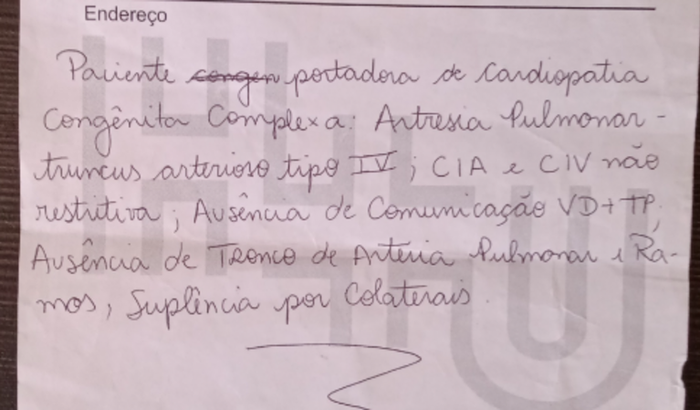 Endereço
Paciente congen portadora de Cardiopatia
Congênita Complexa: Artresia Pulmonar -
truncus arterioso tipo IV; CIA e CIV não
restritiva; Ausência de Comunicação VD+TP,
Ausência de Tronco de Artéria Pulmonar e Ra-
mos, Suplência por Colaterais.